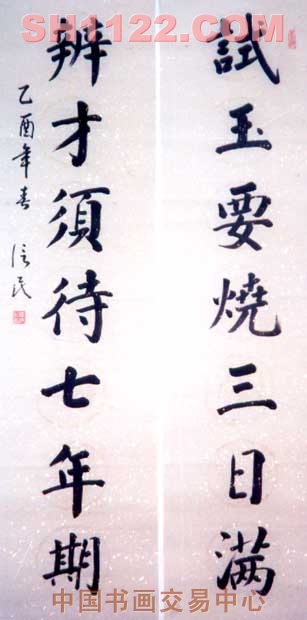 SH1122.COM
試玉要燒三日满
辨才須待七年期
乙酉年春 信民
中国书画交易中心